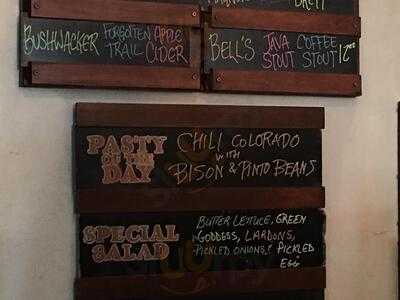 BRETT
BUSHWACKER FORGOTTEN APPLE
TRAIL CIDER
BELL'S JAVA COFFEE
STOUT STOUT 12⁰⁰
PASTY
OF THE
DAY
CHILI COLORADO
WITH
BISON & PINTO BEANS
SPECIAL
SALAD
BUTTER LETTUCE, GREEN
GODDESS, LARDONS,
PICKLED ONIONS & PICKLED
EGG